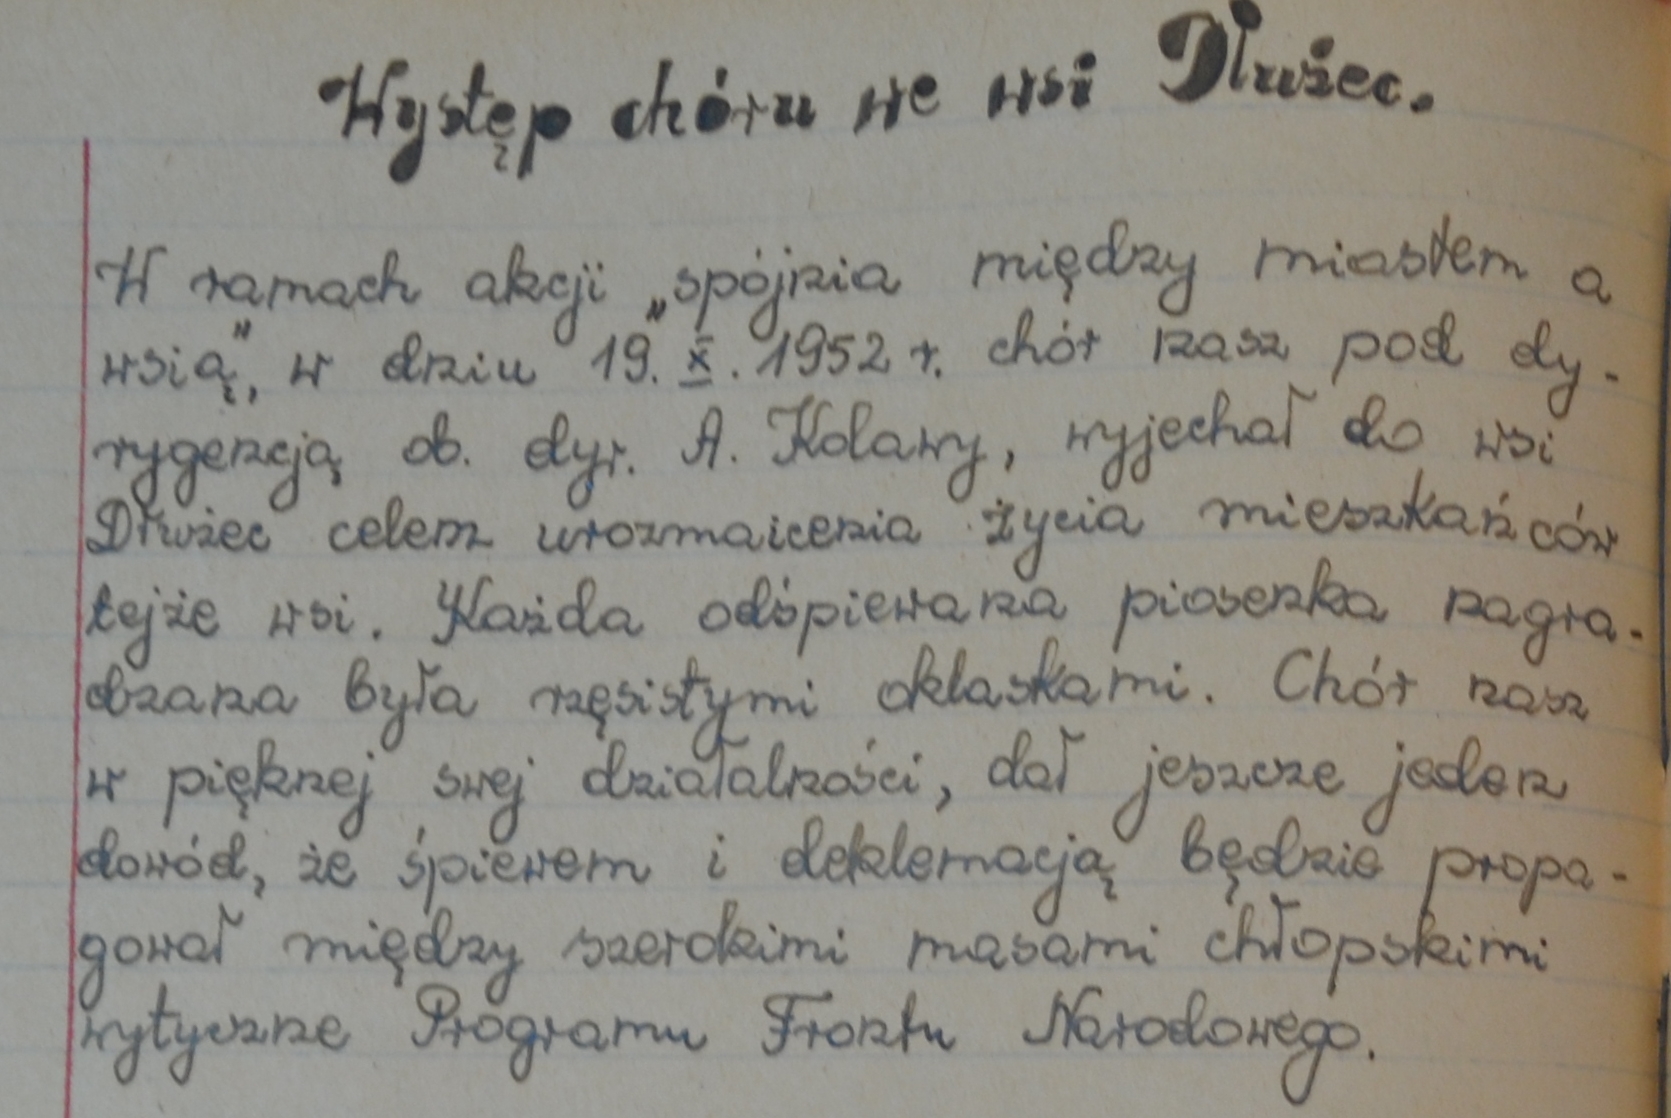 Występ chóru we wsi Dłużec.
W ramach akcji „spójnia między miastem a
wsią", w dniu 19. X. 1952 r. chór nasz pod dy-
rygencją ob. dyr. A. Kolawy, wyjechał do wsi
Dłużec celem urozmaicenia życia mieszkańców
tejże wsi. Każda odśpiewana piosenka nagra-
dzana była rzęsistymi oklaskami. Chór nasz
w pięknej swej działalności, dał jeszcze jeden
dowód, że śpiewem i deklemacją będzie propa-
gował między szerokimi masami chłopskimi
wytyczne Programu Frontu Narodowego.